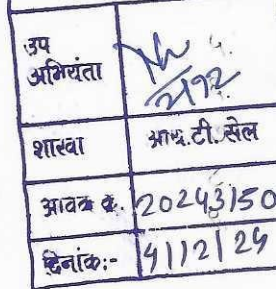 उप
अभियंता
शाखा आय.टी. सेल
आवक क्र. 20243150
दिनांक:- 4/12/24